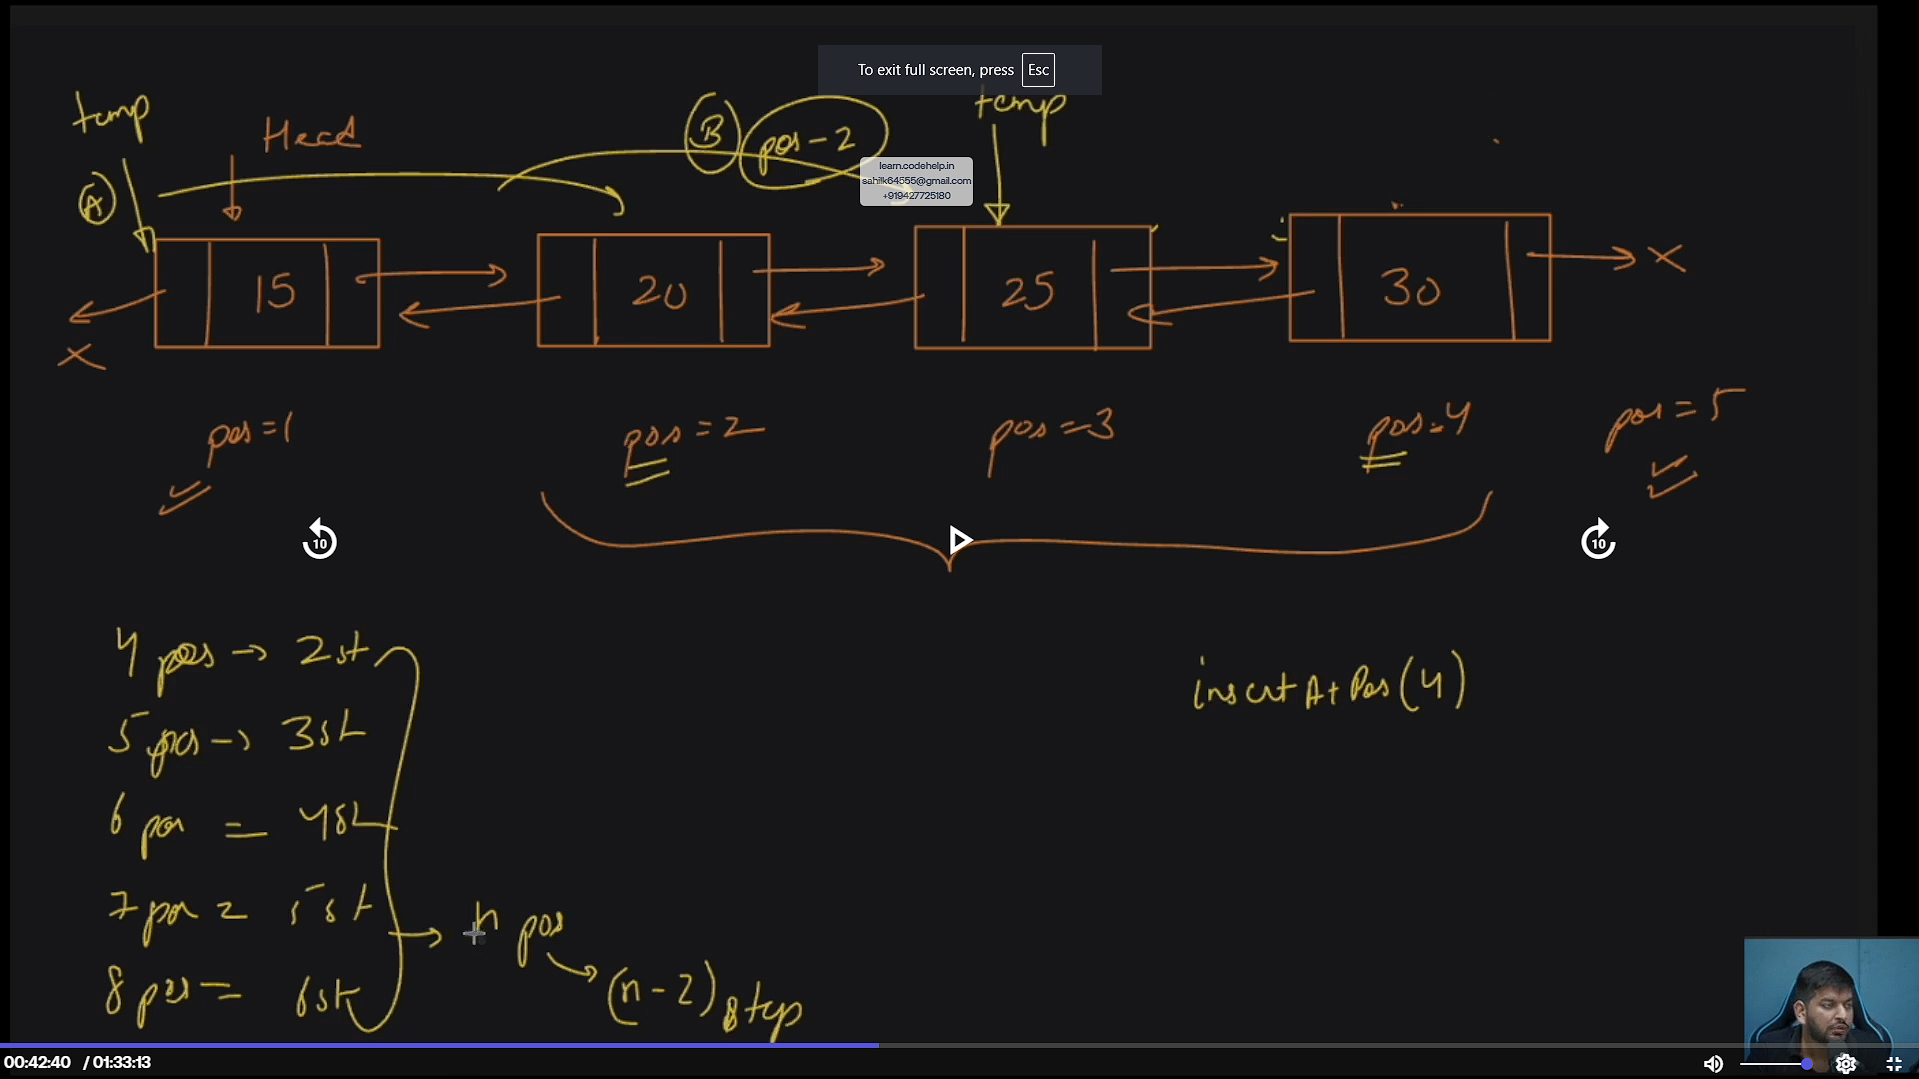 To exit full screen, press Esc
temp
Head
B
pos-2
temp
learn.codehelp.in
sahilk64555@gmail.com
+919427725180
A
15
20
25
30
X
X
pos=1
pos=2
pos=3
pos=4
pos=5
10
10
4 pos → 2st
5 pos → 3st
6 pos = 4st
7 pos = 5st
8 pos = 6st
n pos
(n-2) steps
insertAtPos(4)
00:42:40 / 01:33:13